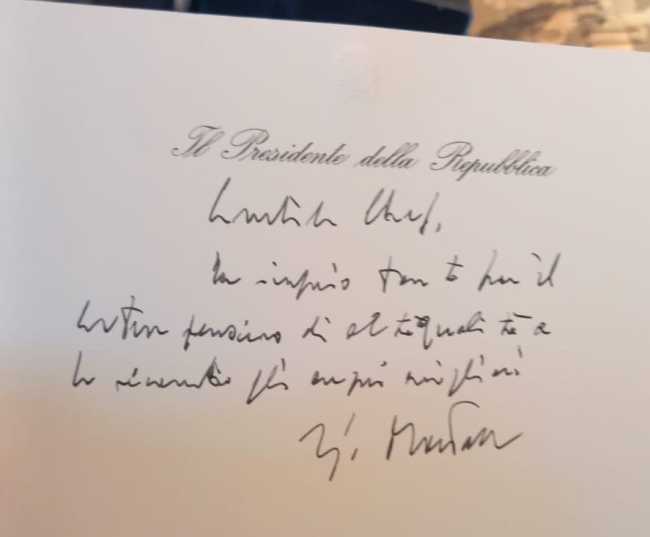 Il Presidente della Repubblica
Gentile Chef,
La ringrazio tanto per il
pensiero di alta qualità e
Le ricambio gli auguri migliori